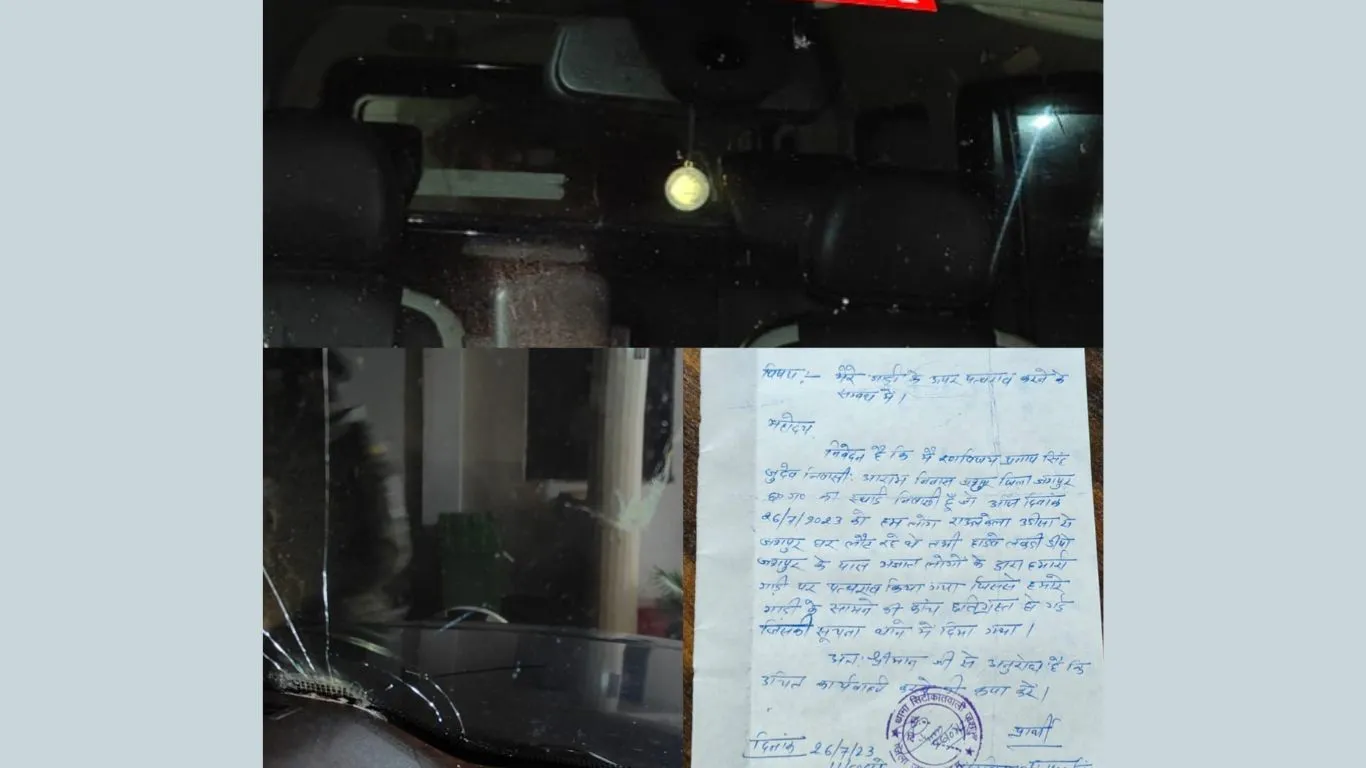 विषय :- मेरे गाड़ी के उपर पत्थराव करने के
सम्बंध में।
महोदय
निवेदन है कि मैं रणविजय प्रताप सिंह
जुदेव निवासी: आराम निवास जशपुर जिला जशपुर
छ०ग० का स्थाई निवासी हूँ जो आज दिनांक
26/7/2023 को हम लोग राउरकेला उडीसा से
जशपुर घर लौट रहे थे तभी हाईवे लकड़ी डीपो
जशपुर के पास अज्ञात लोगों के द्वारा हमारी
गाड़ी पर पत्थराव किया गया जिससे हमारे
गाडी के सामने की कांच क्षतिग्रस्त हो गई
जिसकी सूचना थाने में दिया गया।
अतः श्रीमान जी से अनुरोध है कि
उचित कार्यवाही करने की कृपा करें।
थाना सिटीकोतवाली जशपुर
प्रार्थी
दिनांक 26/7/23